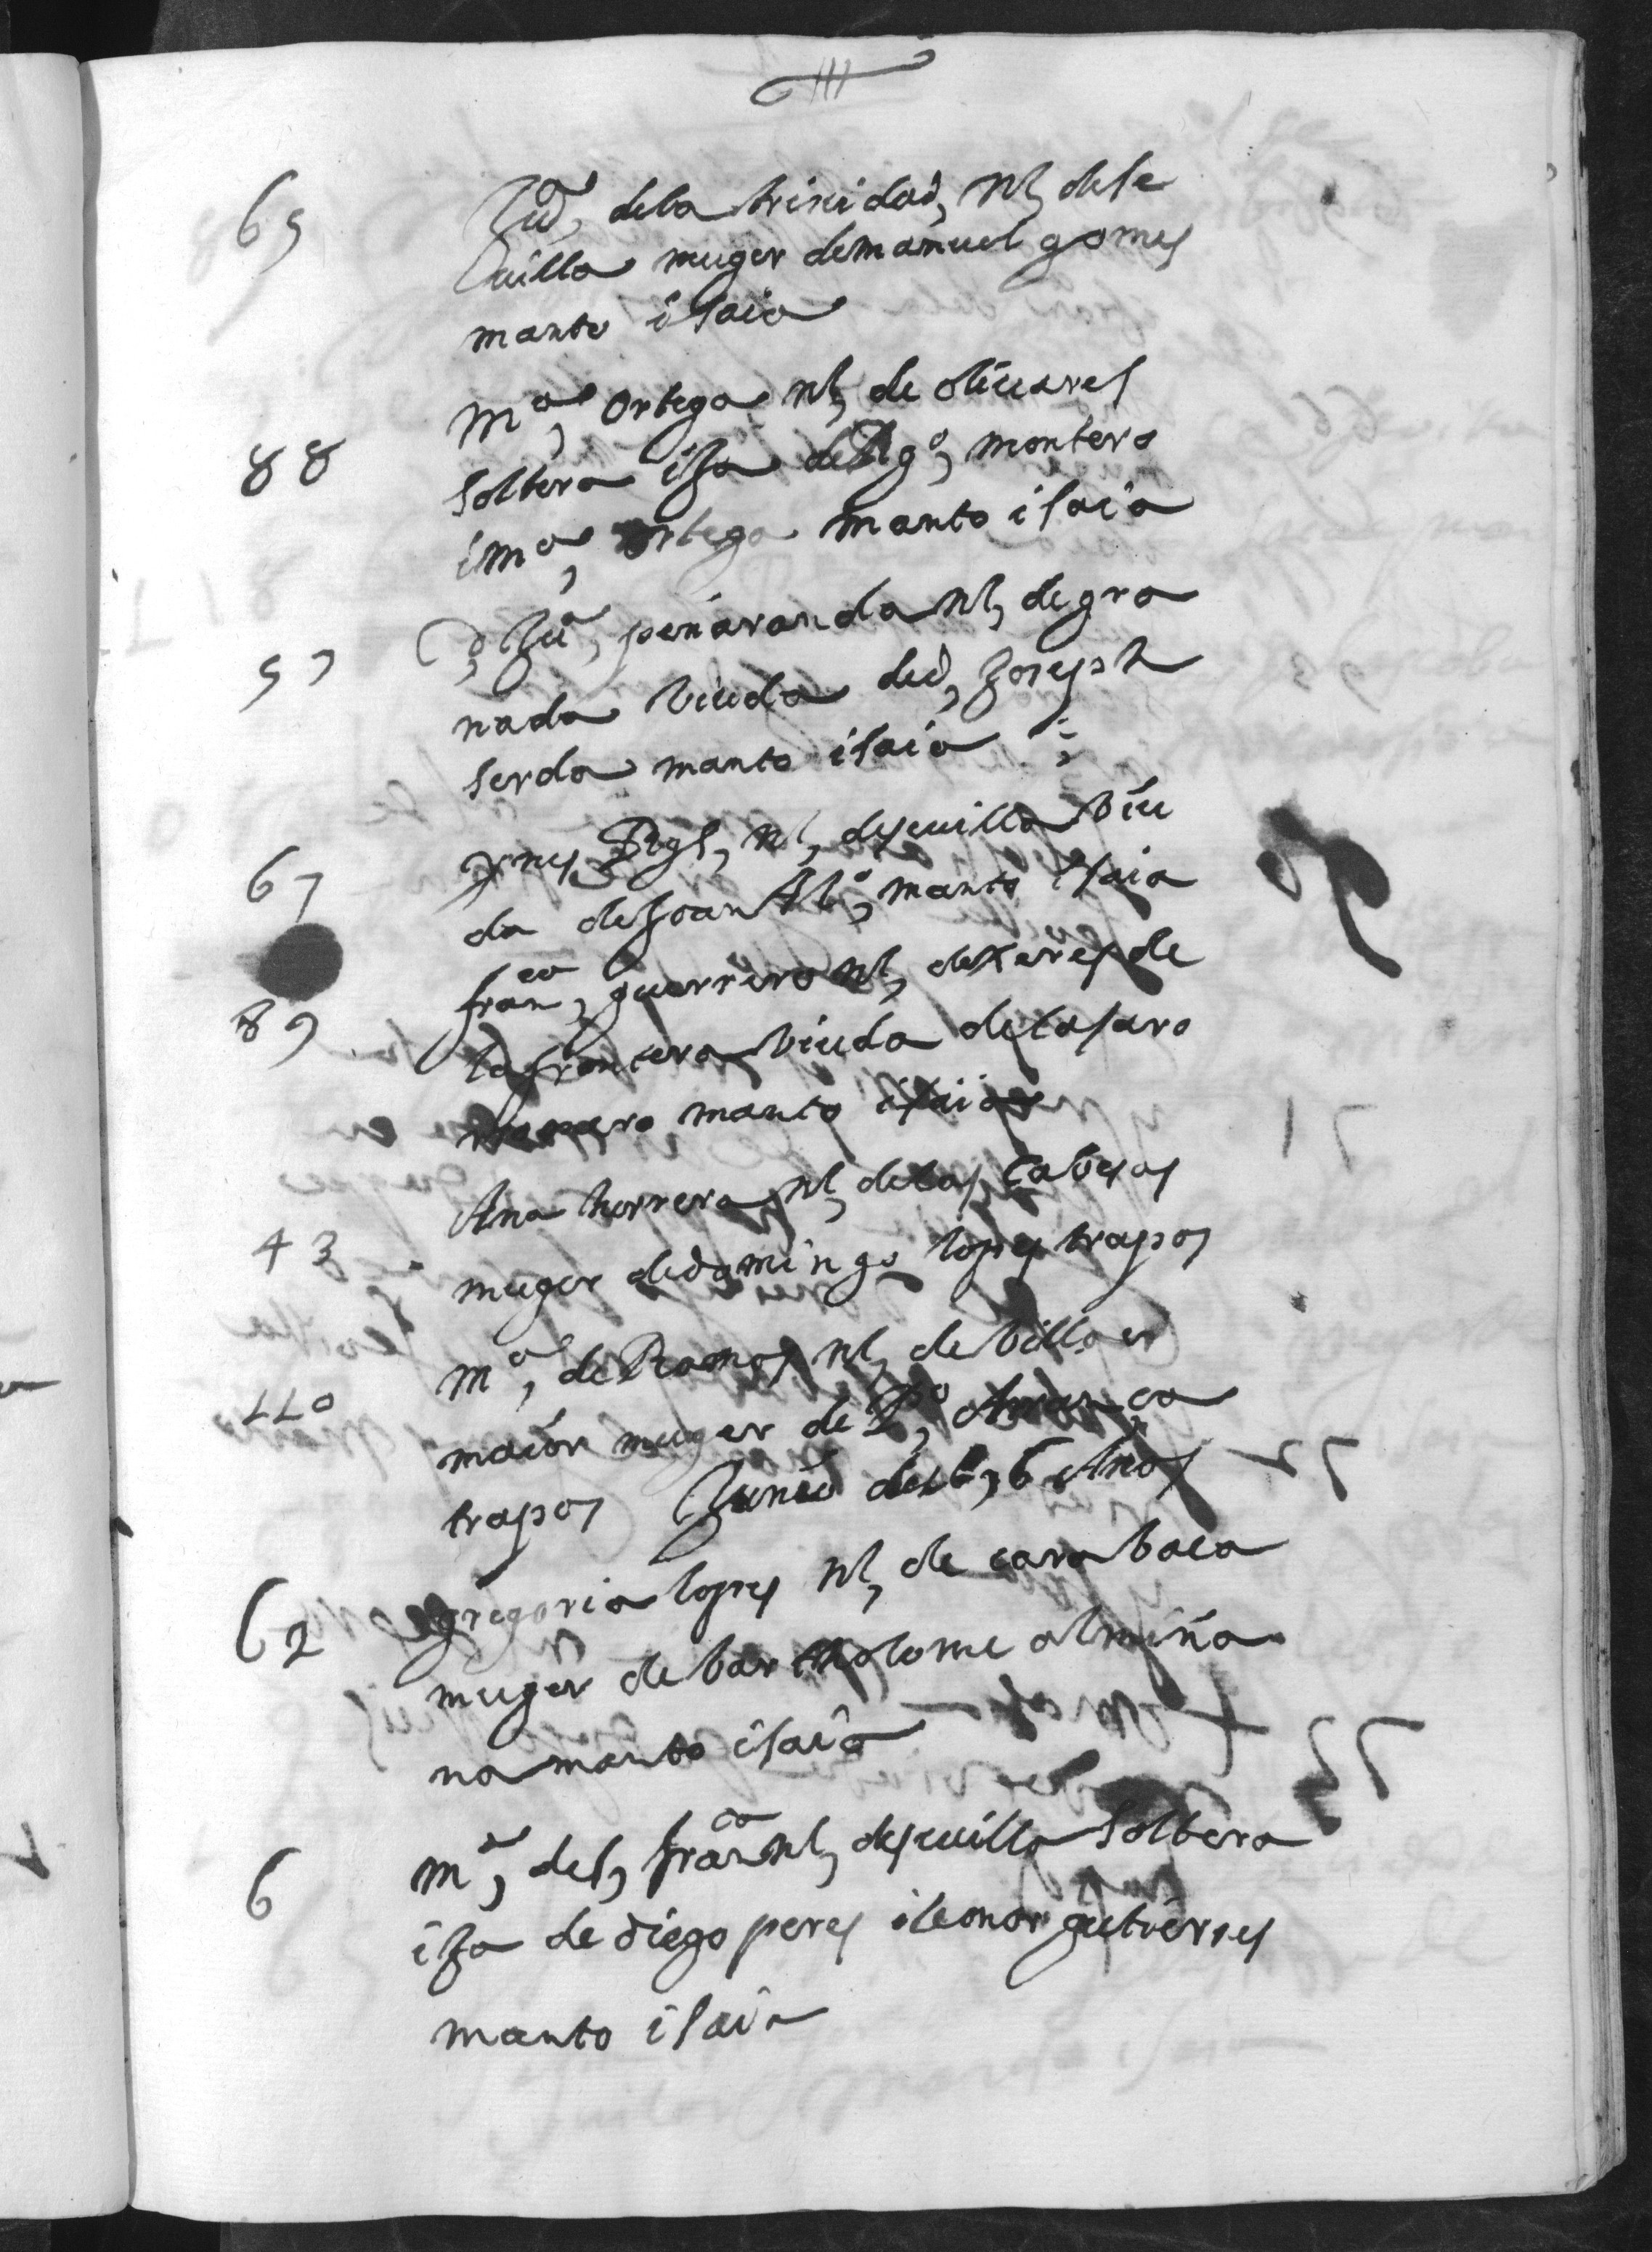 65 Juª, dela trinidad, Nl, dese
Villa muger demanuel gomes
manto isaia
88 mª, ortega Nl, de oliuares
soltera ija de Rgº, montero
i mª, ortega manto isaia
57 D, Juª, penaranda Nl, degra
nada Viuda ded, Joseph
serda manto isaia
67 ynes Rgs, Nl, deseuilla Viu
da de Joan Alº, manto isaia
89 franca, guerrero Nl, dexeres de
la frontera Viuda delasaro
manto isaia
43 Ana herrera Nl, delas Cabesas
muger dedomingo lopes trapos
110 mª, de Ramos Nl, de Villa
maior muger de Pº,
trapos Junio de 656 Anos
62 gregoria lopes Nl, de carabaca
muger de bartholome almiña
na manto isaia
6 mª, de s, franca Nl, deseuilla soltera
ija de diego peres i leonor gutierres
manto isaia